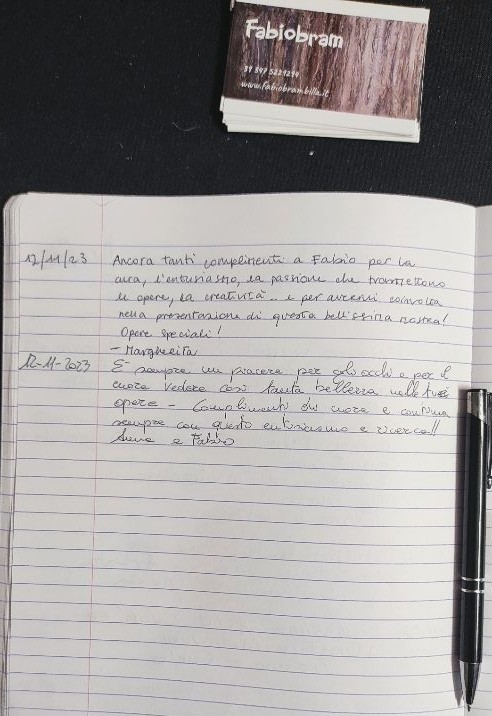 Fabiobram
39 347 5221294
www.fabiobrambilla.it
12/11/23 Ancora tanti complimenti a Fabio per la
cura, l'entusiasmo, la passione che trasmettono
le opere, la creatività.. e per avermi coinvolta
nella presentazione di questa bellissima mostra!
Opere speciali!
- Margherita
12-11-2023 È sempre un piacere per gli occhi e per il
cuore vedere così tanta bellezza nelle tue
opere - Complimenti di cuore e continua
sempre con questo entusiasmo e ricerca!!
e Fabio